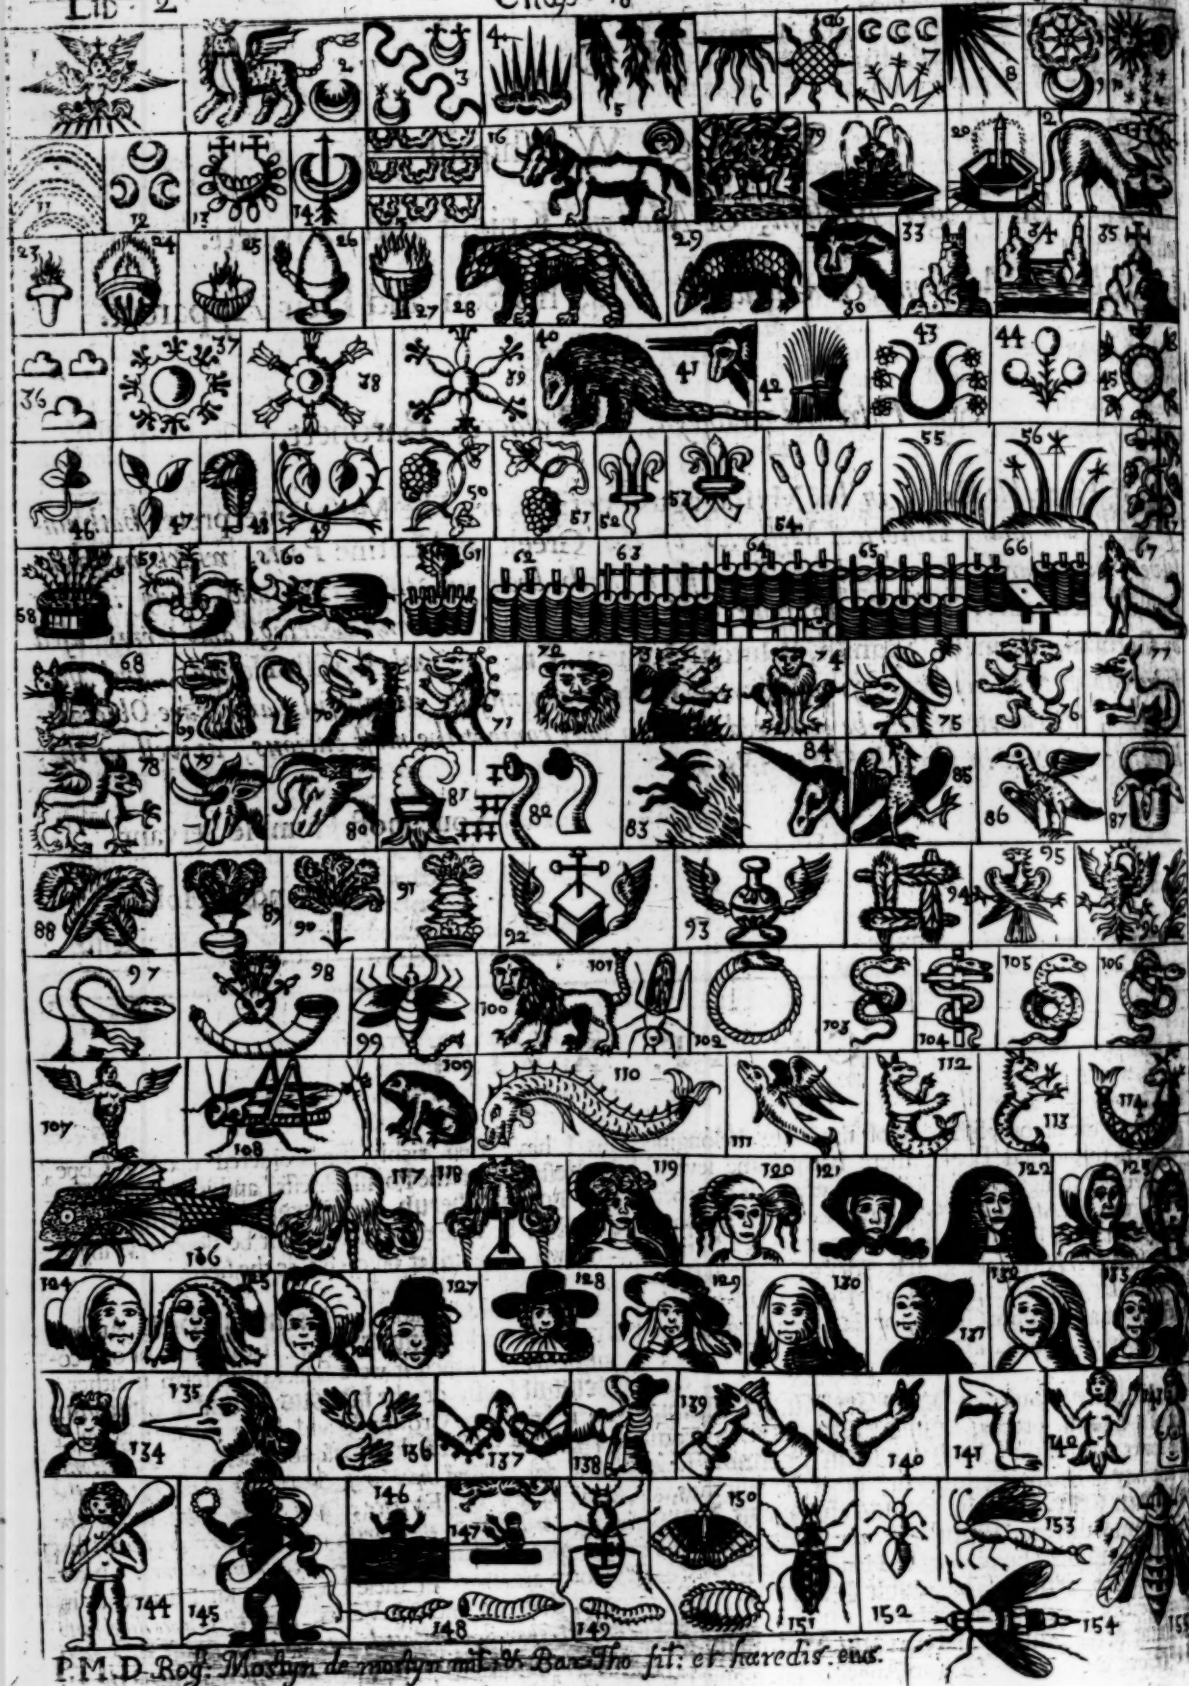 LIB 2 Chap
2 3 4 5 6 7 8 9
11 12 13 14 16 19 20 2
23 24 25 26 27 28 29 30 33 34 35
36 37 38 39 40 41 42 43 44 45
46 47 48 50 51 52 53 54 55 56
58 59 60 61 62 63 64 65 66 67
68 69 70 71 72 73 74 75 76 77
78 79 80 81 82 83 84 85 86 87
88 89 90 91 92 93 94 95 96
97 98 99 100 101 102 103 104 105 106
107 108 109 110 111 112 113 114
116 117 118 119 120 121 122 123
124 125 127 128 129 130 131 132 133
134 135 136 137 138 139 140 141 142
144 145 146 147 148 149 150 151 152 153 154
P. M. D. Rog: Mostyn de mostyn mil: & Bar Tho fil: et hæredis eius.